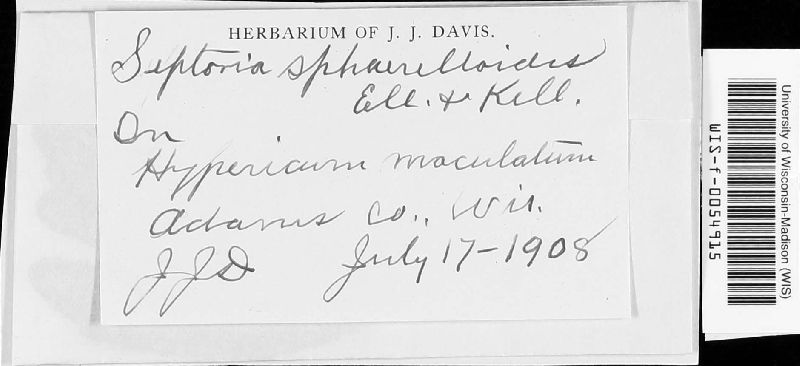 HERBARIUM OF J. J. DAVIS.
Septoria sphaerelloides
Ell. & Kell.
On
Hypericum maculatum
Adams Co., Wis.
JJD July 17-1908
University of Wisconsin-Madison (WIS)
WIS-f-0054915